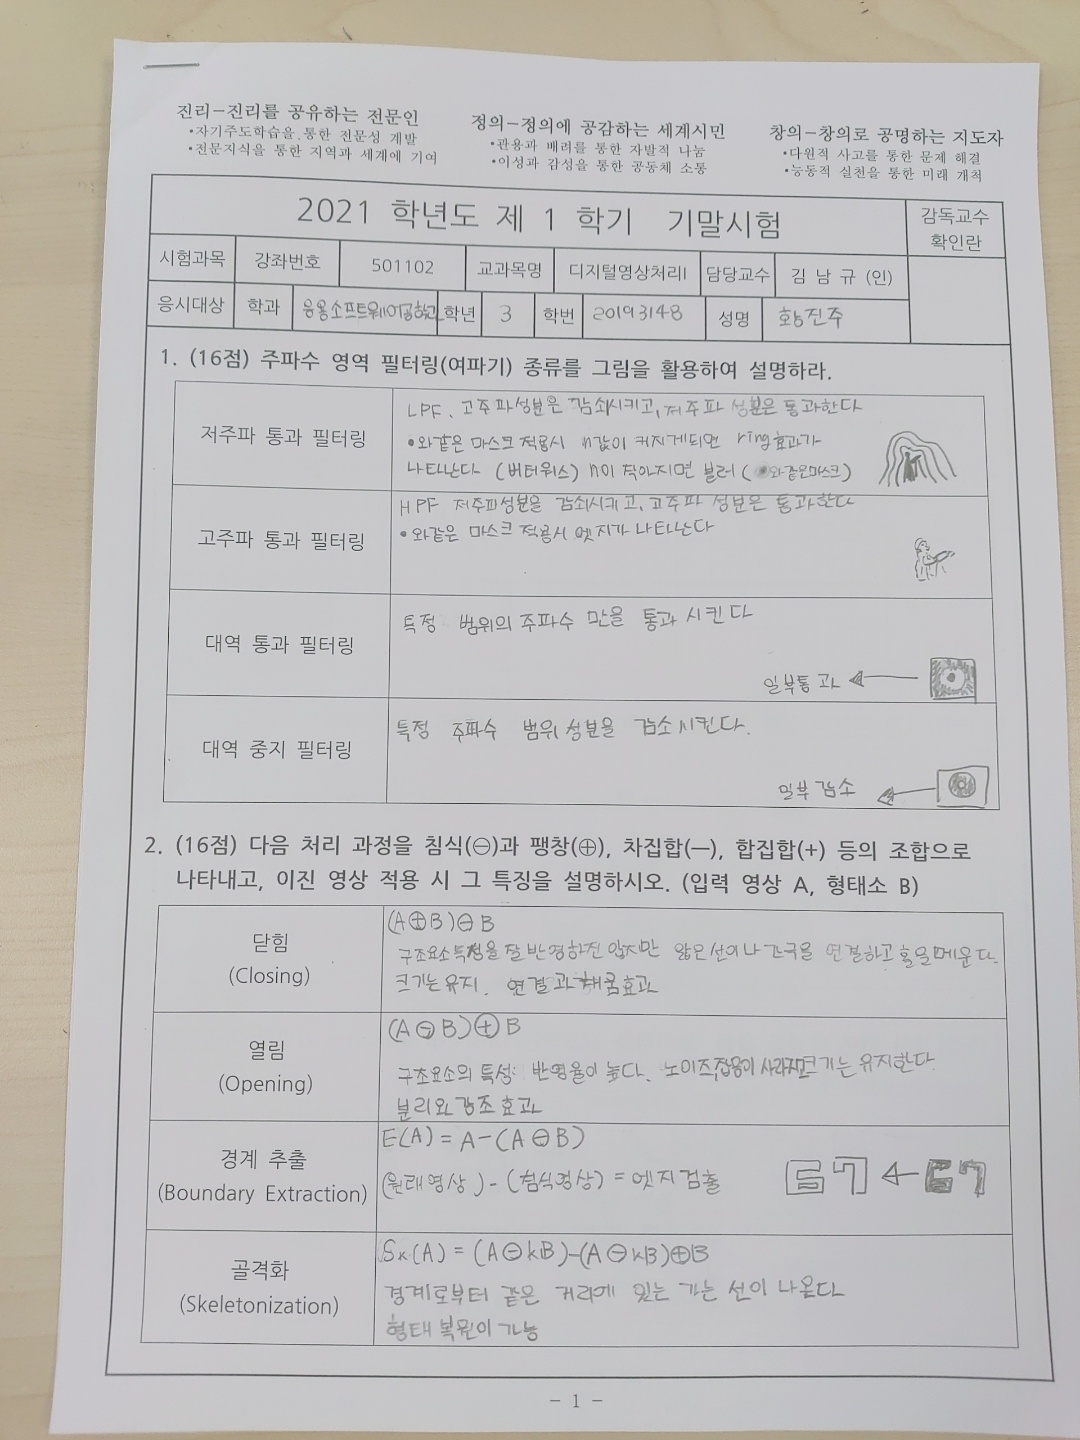 진리-진리를 공유하는 전문인
•자기주도학습을 통한 전문성 개발
•전문지식을 통한 지역과 세계에 기여
정의-정의에 공감하는 세계시민
•관용과 배려를 통한 자발적 나눔
•이성과 감성을 통한 공동체 소통
창의-창의로 공명하는 지도자
•다원적 사고를 통한 문제 해결
•능동적 실천을 통한 미래 개척
2021 학년도 제 1 학기 기말시험
감독교수
확인란
시험과목 강좌번호 501102 교과목명 디지털영상처리I 담당교수 김 남 규 (인)
응시대상 학과 응용소프트웨어공학과 학년 3 학번 20193148 성명 황진주
1. (16점) 주파수 영역 필터링(여파기) 종류를 그림을 활용하여 설명하라.
저주파 통과 필터링
LPF, 고주파성분은 감쇠시키고, 저주파 성분은 통과한다
•와같은 마스크 적용시 n값이 커지게되면 ring효과가
나타난다 (버터워스) n이 적어지면 블러 ( 와같은마스크)
고주파 통과 필터링
HPF 저주파성분을 감쇠시키고, 고주파 성분은 통과한다
•와같은 마스크 적용시 엣지가 나타난다
대역 통과 필터링
특정 범위의 주파수 만을 통과 시킨다
일부통과
대역 중지 필터링
특정 주파수 범위 성분을 감소시킨다.
일부 감소
2. (16점) 다음 처리 과정을 침식(⊖)과 팽창(⊕), 차집합(—), 합집합(+) 등의 조합으로
나타내고, 이진 영상 적용 시 그 특징을 설명하시오. (입력 영상 A, 형태소 B)
닫힘
(Closing)
(A⊕B)⊖B
구조요소특성을 잘 반영하진 않지만 얇은 선이나 간극을 연결하고 홀을메운다.
크기는 유지. 연결과 채움효과
열림
(Opening)
(A⊖B)⊕B
구조요소의 특성 반영율이 높다. 노이즈,잡음이 사라지며크기는 유지한다.
분리와 강조 효과
경계 추출
(Boundary Extraction)
E(A) = A-(A⊖B)
(원래영상) - (침식영상) = 엣지검출
골격화
(Skeletonization)
Sk(A) = (A⊖kB)-(A⊖kB)⊕B
경계로부터 같은 거리에 있는 가는 선이 나온다
형태 복원이 가능
- 1 -